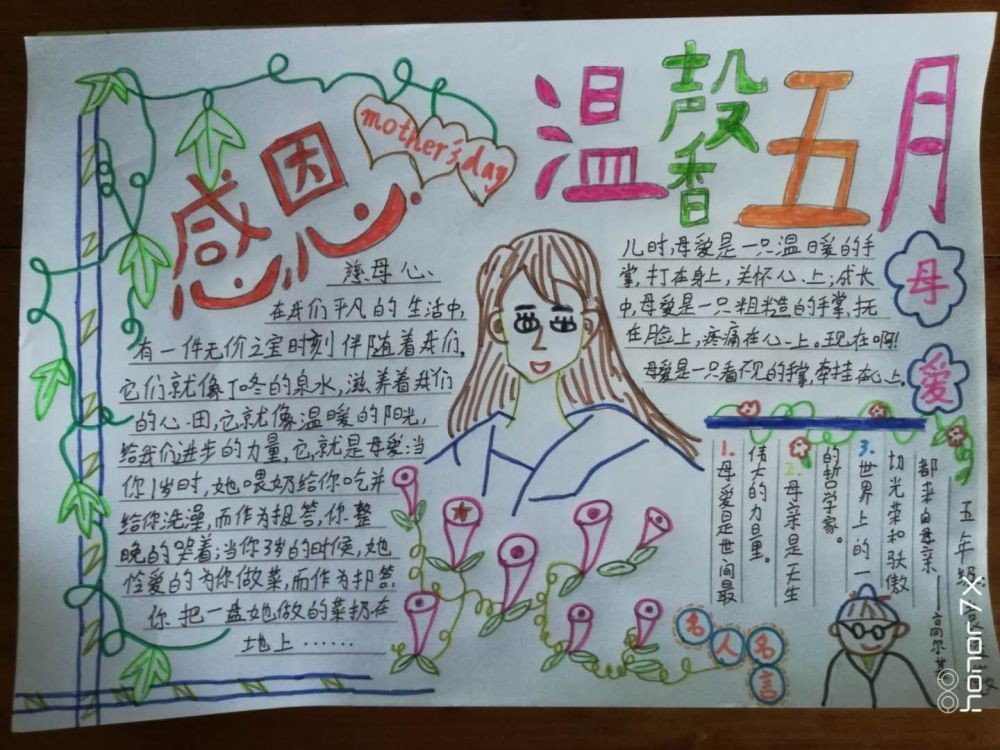 温馨五月
感恩
mother's day
慈母心、
在我们平凡的生活中,
有一件无价之宝时刻伴随着我们,
它们就像丁冬的泉水,滋养着我们
的心田,它就像温暖的阳光,
给我们进步的力量,它就是母爱:当
你1岁时,她喂奶给你吃并
给你洗澡,而作为报答,你整
晚的哭着;当你3岁的时候,她
怜爱的为你做菜,而作为报答,
你把一盘她做的菜扔在
地上……
儿时,母爱是一只温暖的手
掌,打在身上,关怀心上;成长
中,母爱是一只粗糙的手掌,抚
在脸上,疼痛在心上。现在啊!
母爱是一只看不见的手掌,牵挂在心上。
母爱
1.母爱是世间最
伟大的力量。
2.母亲是天生
的哲学家。
3.世界上的一
切光荣和骄傲
都来自母亲
——高尔基
五年级
名人名言
honor 7x